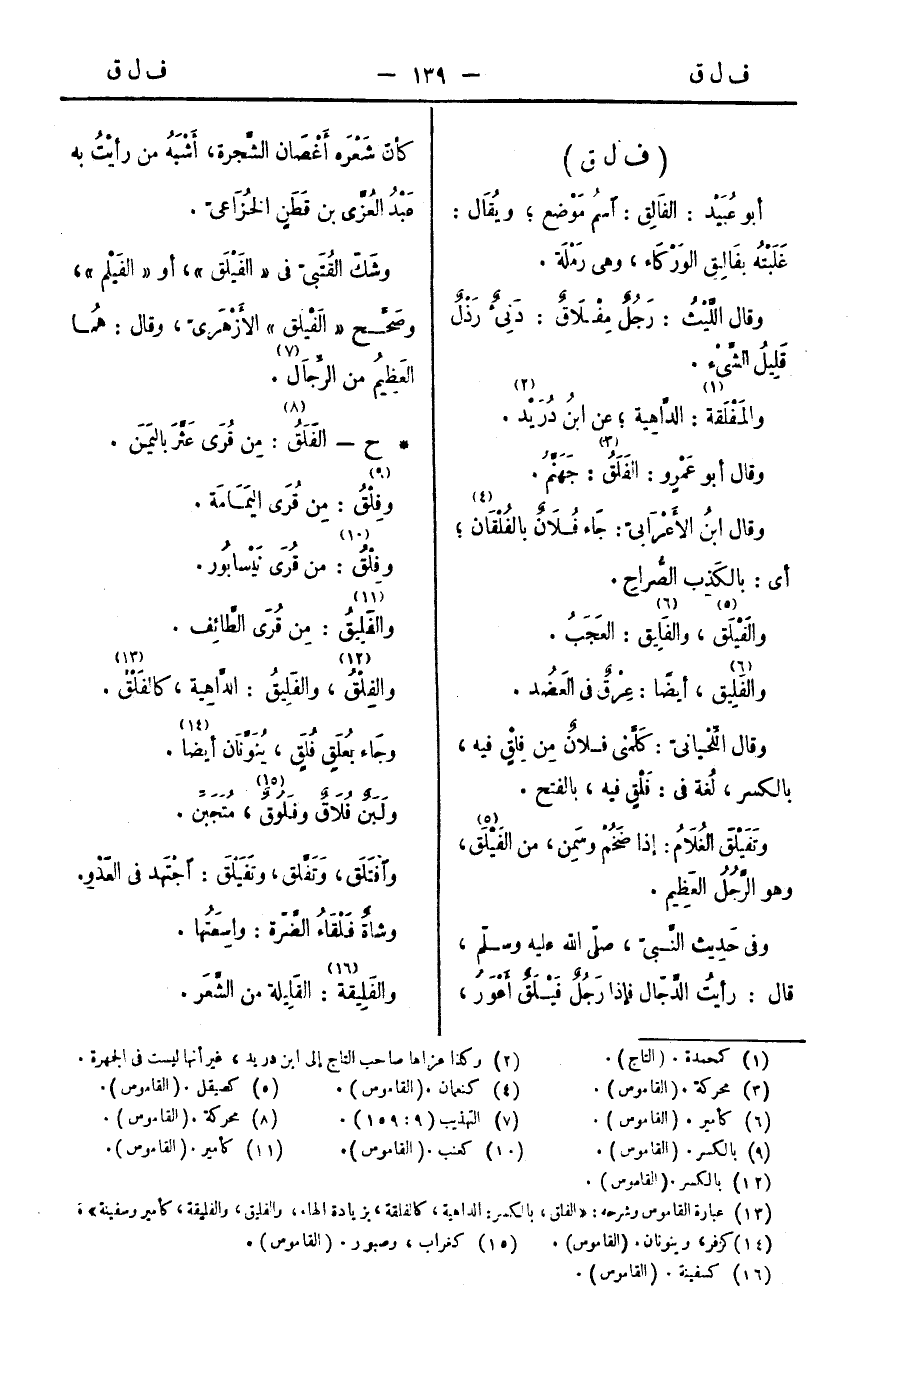 ف ل ق — ١٣٩ — ف ل ق
( ف ل ق )
أبو عُبَيْد : الفَالِق : ٱسمُ مَوْضع ؛ ويُقَال :
عَلَبْتُه بفَالِق الوَرْكَاء ، وهى رَمْلَة .
وقال اللَّيْثُ : رَجُلٌ مِفْلَاقٌ : دَنِىءٌ رَذْلٌ
قَلِيلُ الشَّىْء .
والمَفْلَقة (١) : الدَّاهِية ؛ عن ابنُ دُرَيْد (٢) .
وقال أبو عَمْرٍو : الفَلَقُ (٣) : جَهَنَّمُ .
وقال ابنُ الأَعْرَابىّ : جَاء فُلَانٌ بالفُلْقَان (٤) ؛
أى : بالكَذِب الصُّرَاحِ .
والفَيْلَق (٥) ، والفَلِيق (٦) : العَجَبُ .
والفَلِيق (٦) ، أيضًا : عِرْقٌ فى العَضُد .
وقال اللِّحْيانىّ : كَلَّمَنى فلانٌ مِن فِلْقِ فيه ،
بالكسر ، لُغة فى : فَلْقِ فيه ، بالفتح .
وتَفَيْلَقَ الغُلَامُ : إذا ضَخُمَ وسَمِن ، من الفَيْلَق (٥) ،
وهو الرَّجُلُ العَظِيم .
وفى حَدِيث النَّبىّ ، صلّى الله عليه وسلّم ،
قال : رأيتُ الدَّجّال فإذا رَجُلٌ فَيْلَقٌ أَعْوَرُ ،
كأنّ شَعْرَه أَغْصَان الشَّجرة ، أَشْبَهُ من رأيْتُ به
عَبْدُ العُزَّى بن قَطَنٍ الخُزَاعىّ .
وشَكّ القُتَبىّ فى « الفَيْلَق » ، أو « الفَيْلَم » ،
وصَحَّح « الفَيْلق » الأَزْهَرىّ ، وقال : هُمَا
العَظِيمُ من الرِّجَال (٧) .
* ح — الفَلَقُ (٨) : مِن قُرَى عَثَّرَ باليَمَن .
وفِلْقُ (٩) : مِن قُرَى اليَمَامَة .
وفِلَقُ (١٠) : من قُرَى نَيْسابُور .
والفَلِيقُ (١١) : مِن قُرَى الطَّائِف .
والفِلْقُ (١٢) ، والفَلِيقُ : الدَّاهِية ، كالفَلْق (١٣) .
وجَاء بعُلَقٍ فُلَقٍ (١٤) ، يُنَوَّنَان أيضا .
ولَبَنٌ فُلَاقٌ وفَلُوقٌ (١٥) ، مُتَجَبِّن .
وٱفْتَلَق ، وتَفَلَّق ، وتَفَيْلَقَ : ٱجْتَهَد فى العَدْوِ .
وشاةٌ فَلْقَاءُ الضَّرّة : واسِعَتُها .
والفَلِيقة (١٦) : القَلِيلة من الشَّعَر .
(١) كحمدة . (التاج) . (٢) وكذا عزاها صاحب التاج إلى ابن دريد ، غير أنها ليست فى الجمهرة .
(٣) محركة . (القاموس) . (٤) كعثمان . (القاموس) . (٥) كصيقل . (القاموس) .
(٦) كأمير . (القاموس) . (٧) التهذيب (٩ : ١٥٩) . (٨) محركة . (القاموس) .
(٩) بالكسر . (القاموس) . (١٠) كعنب . (القاموس) . (١١) كأمير . (القاموس) .
(١٢) بالكسر . (القاموس) .
(١٣) عبارة القاموس وشرحه : « الفلق ، بالكسر : الداهية ، كالفلقة ، بزيادة الهاء ، والفليق ، والفليقة ، كأمير وسفينة » .
(١٤) كزفر ، وينونان . (القاموس) . (١٥) كغراب ، وصبور . (القاموس) .
(١٦) كسفينة . (القاموس) .